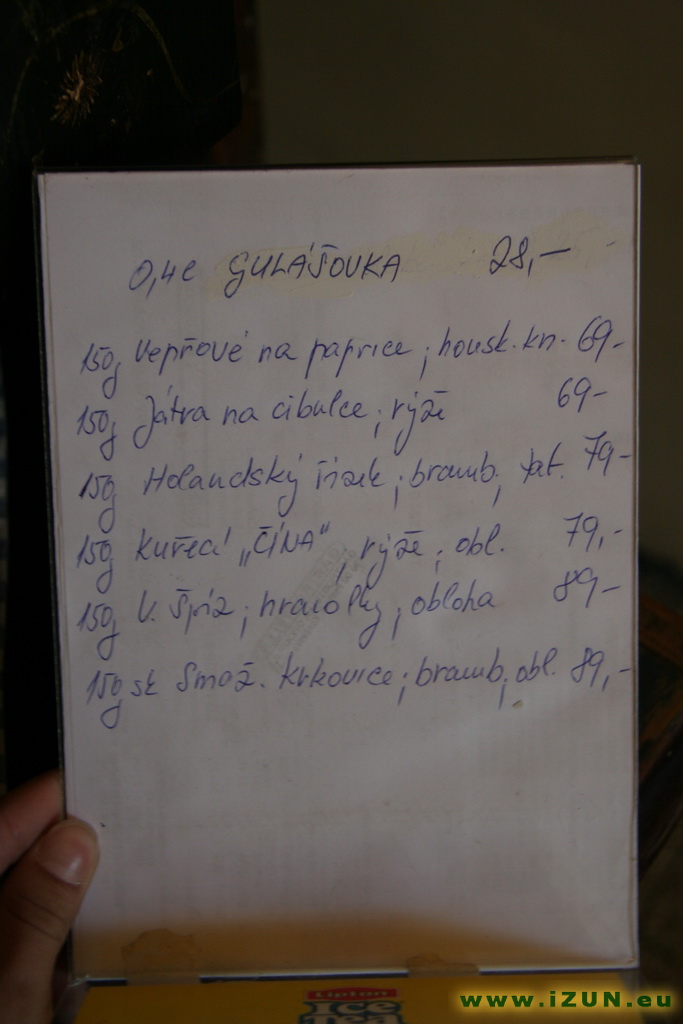 0,4l GULÁŠOVKA 28,-
150g Vepřové na paprice, housk. kn. 69-
150g Játra na cibulce, rýže 69-
150g Holandský řízek, bramb, tat. 79-
150g Kuřecí „ČÍNA“, rýže, obl. 79,-
150g V. Špíz, hranolky, obloha 89,-
150g sk Smaž. krkovice, bramb, obl. 89,-
Lipton
Ice Tea
www.iZUN.eu